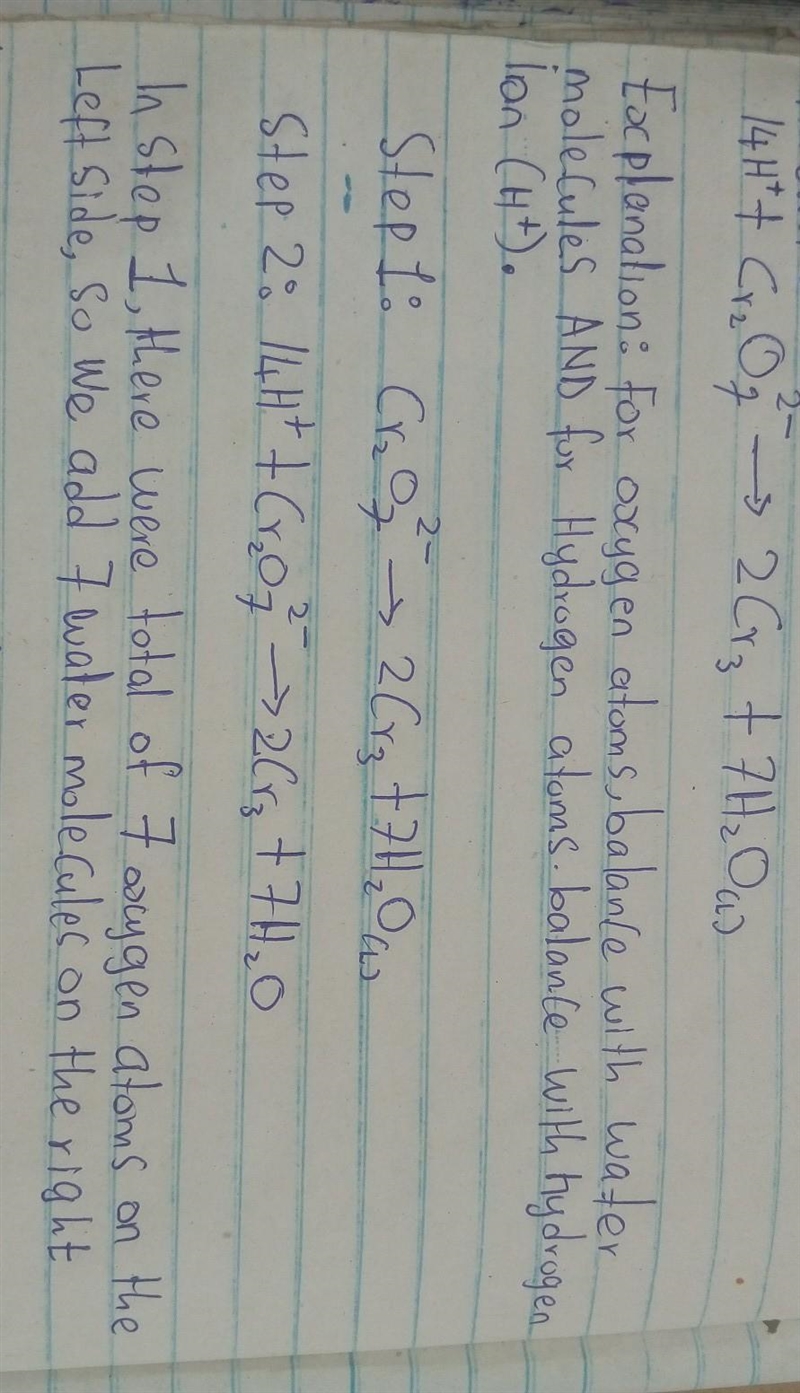 14H⁺ + Cr₂O₇²⁻ → 2Cr₃ + 7H₂O₍ₗ₎
Explanation: for oxygen atoms, balance with water
molecules AND for Hydrogen atoms. balance with hydrogen
ion (H⁺).
Step 1: Cr₂O₇²⁻ → 2Cr₃ + 7H₂O₍ₗ₎
Step 2: 14H⁺ + Cr₂O₇²⁻ → 2Cr₃ + 7H₂O
In step 1, there were total of 7 oxygen atoms on the
Left side, so we add 7 water molecules on the right